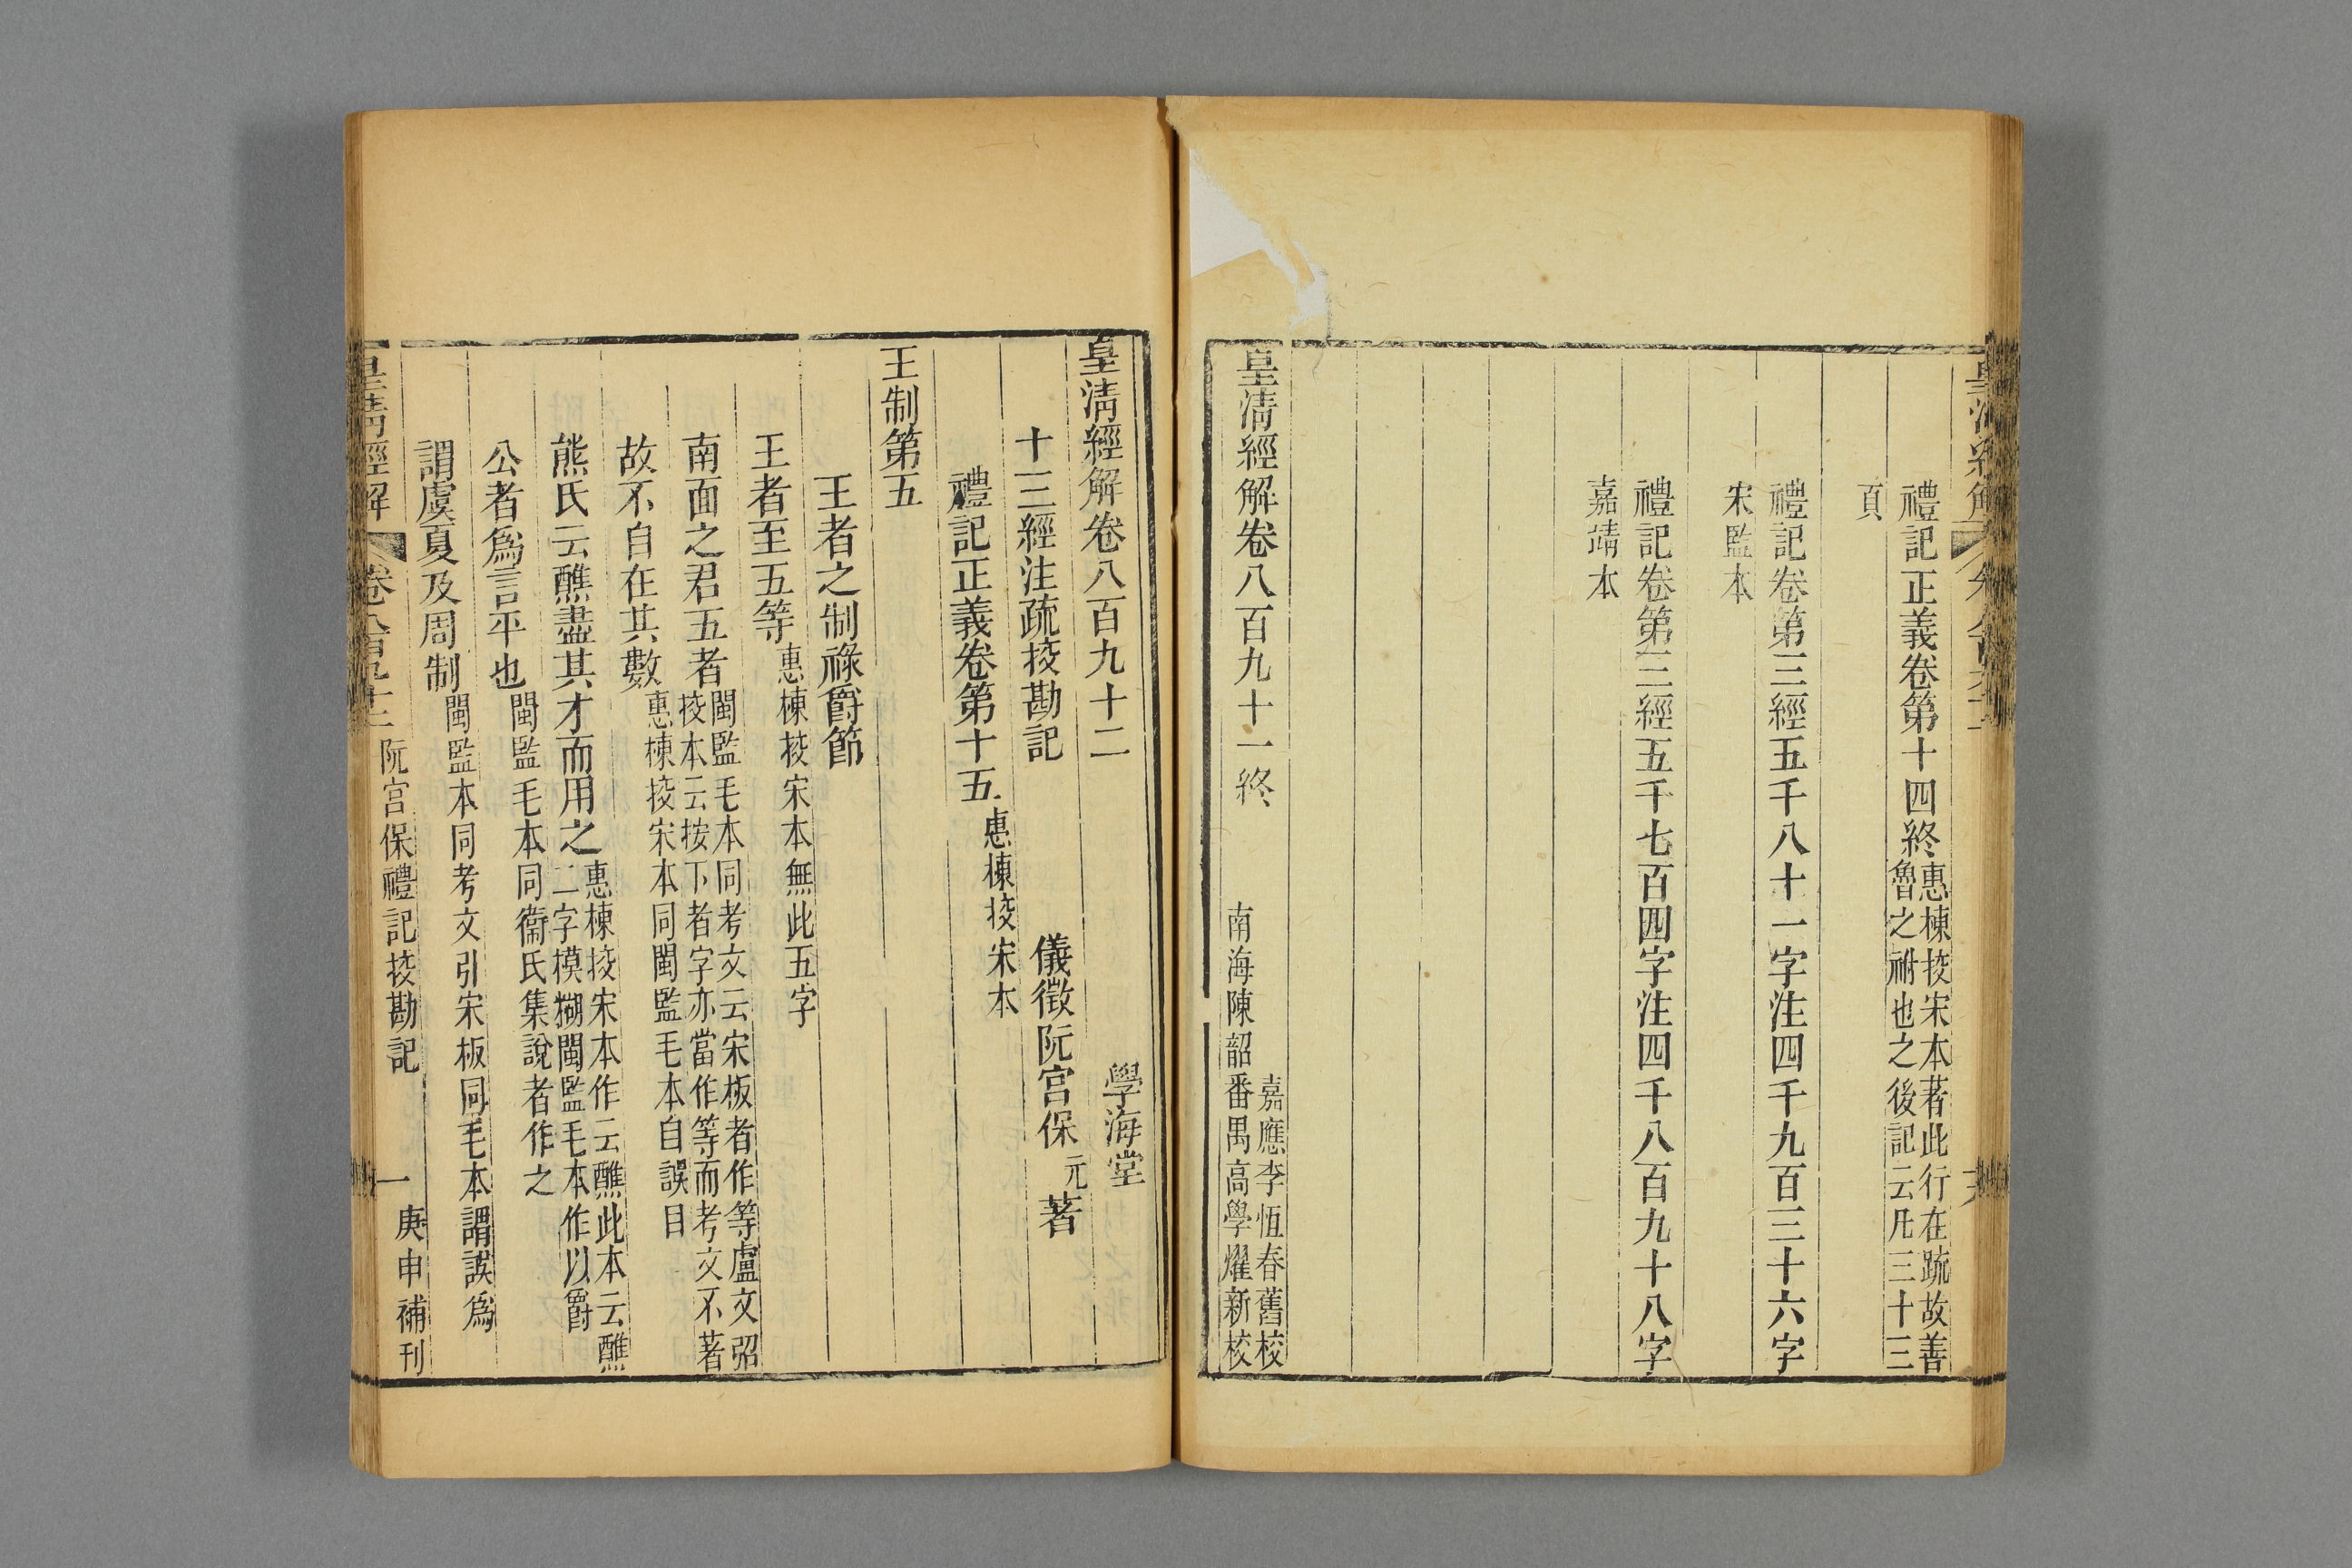 禮記正義卷第十四終惠棟挍宋本著此行在䟽故善
魯之祔也之後記云凡三十三
頁
禮記卷第三經五千八十一字注四千九百三十六字
宋監本
禮記卷第三經五千七百四字注四千八百九十八字
嘉靖本
皇淸經解卷八百九十一終
嘉應李恆春舊校
南海陳韶番禺高學燿新校
皇淸經解卷八百九十二
學海堂
十三經注疏挍勘記
儀徵阮宮保元著
禮記正義卷第十五惠棟挍宋本
王制第五
王者之制祿爵節
王者至五等惠棟挍宋本無此五字
南面之君五者閩監毛本同考文云宋板者作等盧文弨
挍本云按下者字亦當作等而考文不著
故不自在其數惠棟挍宋本同閩監毛本自誤目
熊氏云醮盡其才而用之惠棟挍宋本作云醮此本云醮
二字模糊閩監毛本作以爵
公者爲言平也閩監毛本同衞氏集說者作之
謂虞夏及周制閩監毛本同考文引宋板同毛本謂誤爲
皇淸經解 卷八百九十二 阮宮保禮記挍勘記 一 庚申補刊